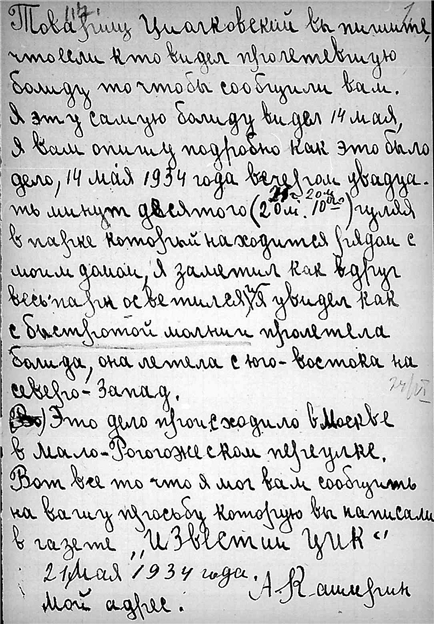 Товарищ Циолковский вы пишите,
что если кто видел пролетевшую
болиду то чтобы сообщили вам.
Я эту самую болиду видел 14 мая,
я вам опишу подробно как это было
дело, 14 мая 1934 года вечером увадца-
ть минут десятого (20 м. 10го) гуляя
в парке который находится рядом с
моим домом, я заметил как вдруг
весь парк осветился, я увидел как
с быстротой молнии пролетела
болида, она летела с юго-востока на
северо-Запад.
Это дело происходило в Москве
в мало-Рогожеском переулке.
Вот все то что я мог вам сообщить
на вашу просьбу которую вы написали
в газете „Известии ЦИК“
21 мая 1934 года.
А-Кашергин
мой адрес.